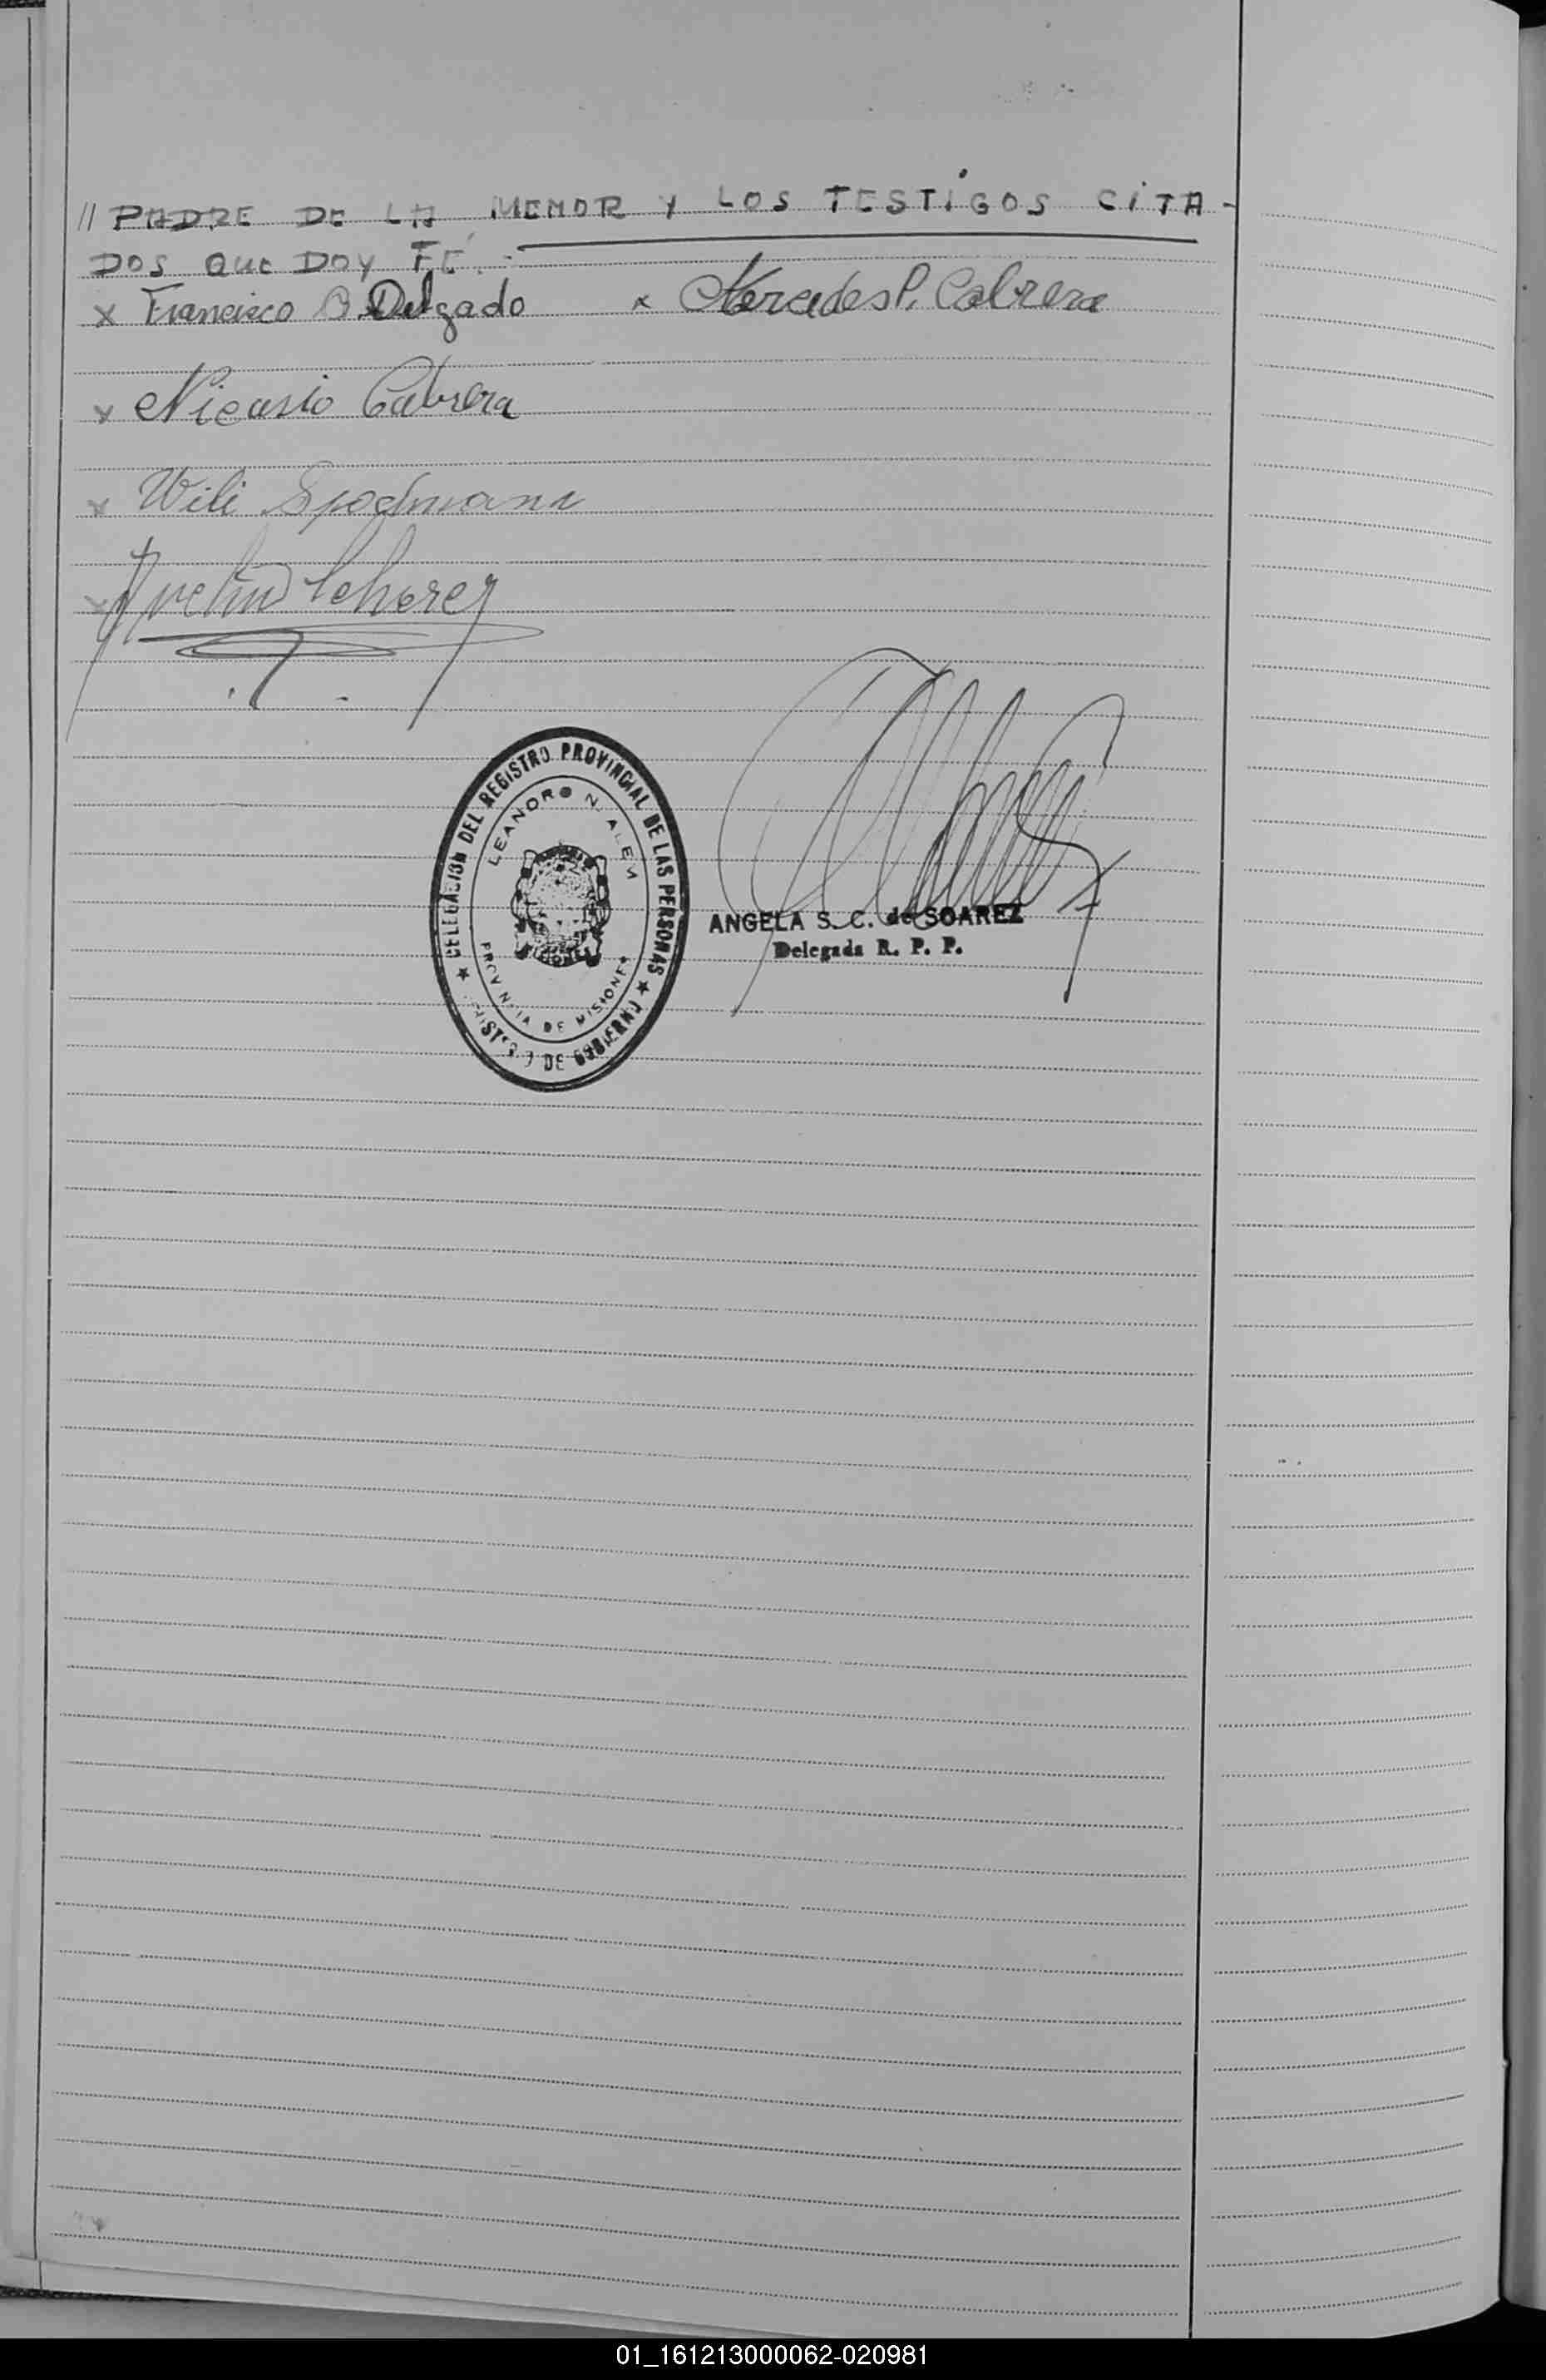 // PADRE DE LA MENOR Y LOS TESTIGOS CITA-
DOS QUE DOY FÉ.-
x Francisco O. Delgado x Mercedes P. Cabrera
x Nicasio Cabrera
x Wili Spodmann
x
DELEGACION DEL REGISTRO PROVINCIAL DE LAS PERSONAS ★ DE GOBIERNO ★
LEANDRO N. ALEM
PROVINCIA DE MISIONES
ANGELA S. C. de SOAREZ
Delegada R. P. P.
01_161213000062-020981